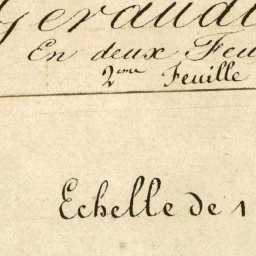 Geraudi
En deux Feu
2eme Feuille
Echelle de 1